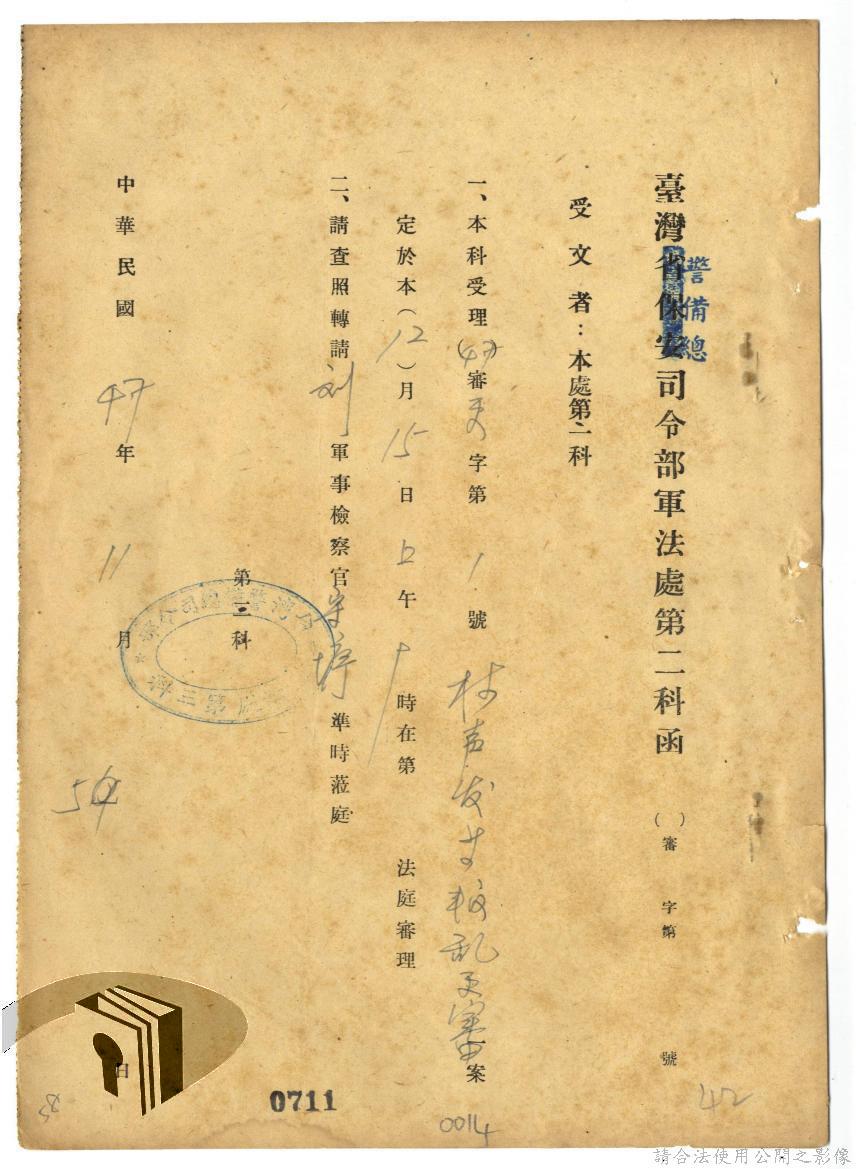 臺灣省保安司令部軍法處第二科函 ( )審 字第 號
警備總
受文者：本處第二科
一、本科受理(47)審更字第1號 林声发等叛乱更審案
定於本(12)月15日上午十時在第 法庭審理
二、請查照轉請刘軍事檢察官 準時蒞庭
第三科
中華民國47年11月 日
0711
0014
42
請合法使用公開之影像